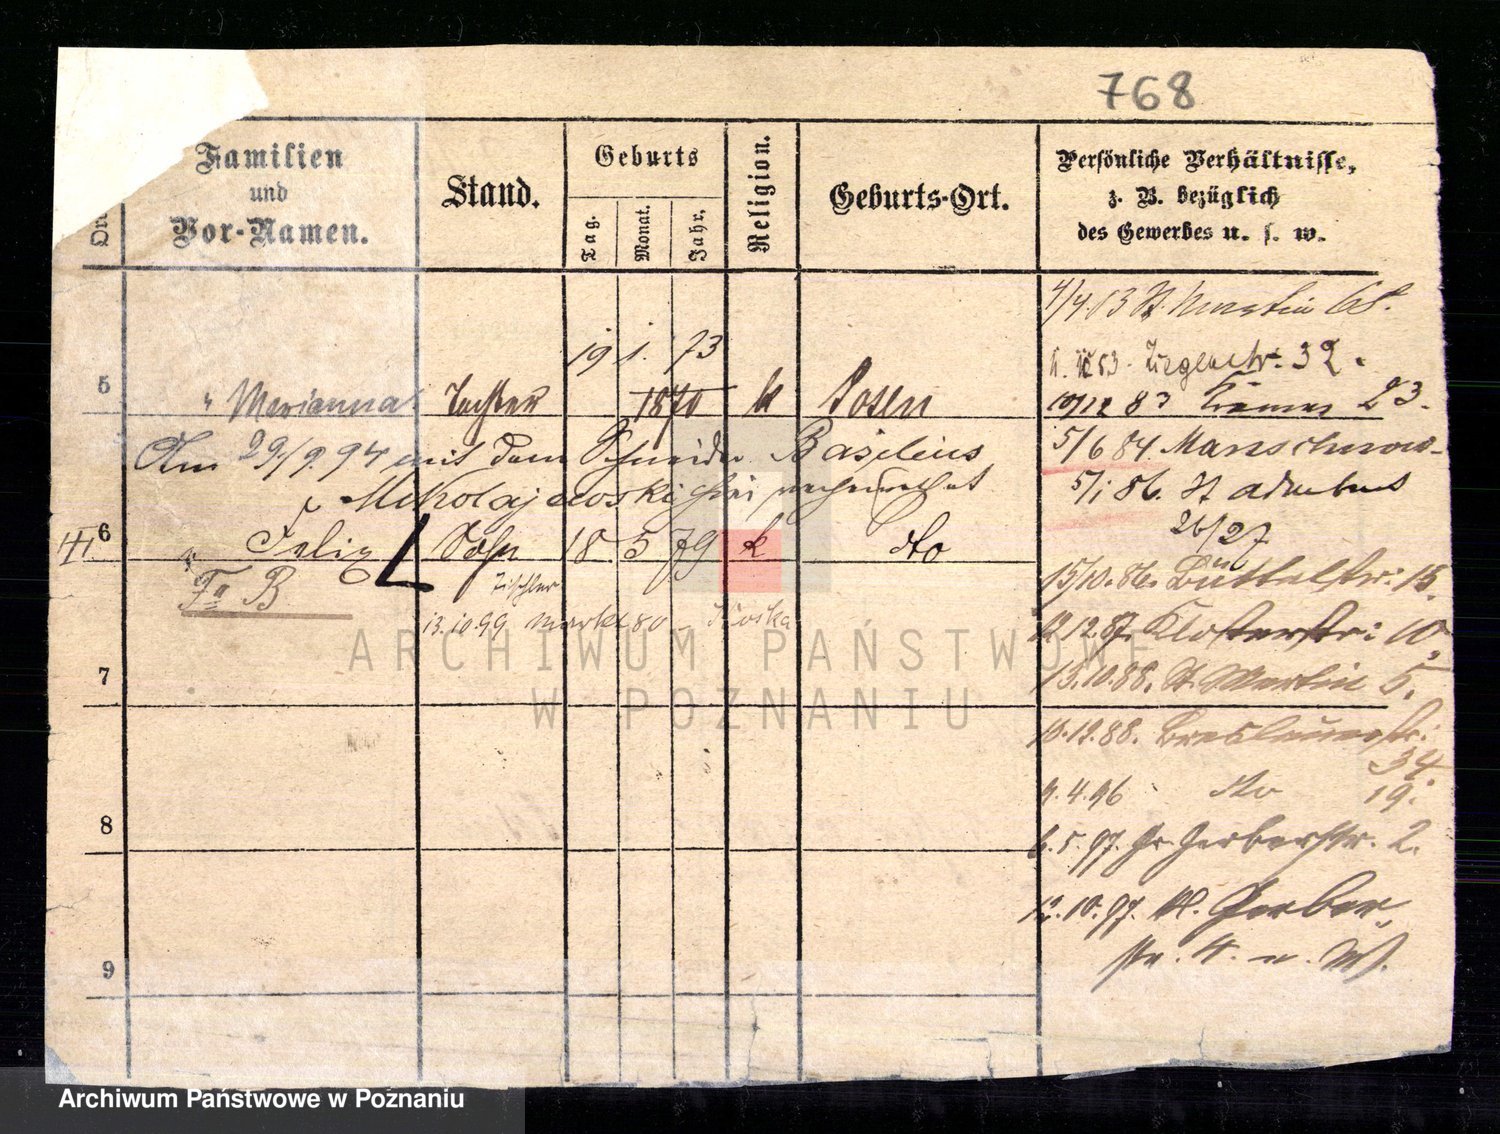 768
Familien
und
Vor-Namen.
Stand.
Geburts
Tag.
Monat.
Jahr.
Religion.
Geburts-Ort.
Persönliche Verhältnisse,
z. B. bezüglich
des Gewerbes u. s. w.
4/4.83 St. Martin 68.
83. Ziegenstr. 32.
19 1. 73
5 " Marianna Tochter 1870 k Posen
10/12 83 23.
Am 29/9.94 mit dem Schneider Basilius
5/6 84
Mikolajewski verheirathet
5/1 86. St Adalbert
26/27
6 Felix Sohn 18 5 79 k do
15/10.86. Büttelstr: 15.
Fu B
Tischler
13.10.99 Markt 80
12.12.87. Klosterstr: 10,
7
13.10.88. St. Martin 5.
10.12.88. Breslauerstr:
34.
9.4.96 do 19.
8
6.5.97. Gr. Gerberstr. 2.
12.10.97. Kl. Gerber-
str. 4.
9
ARCHIWUM PAŃSTWOWE
W POZNANIU
Archiwum Państwowe w Poznaniu